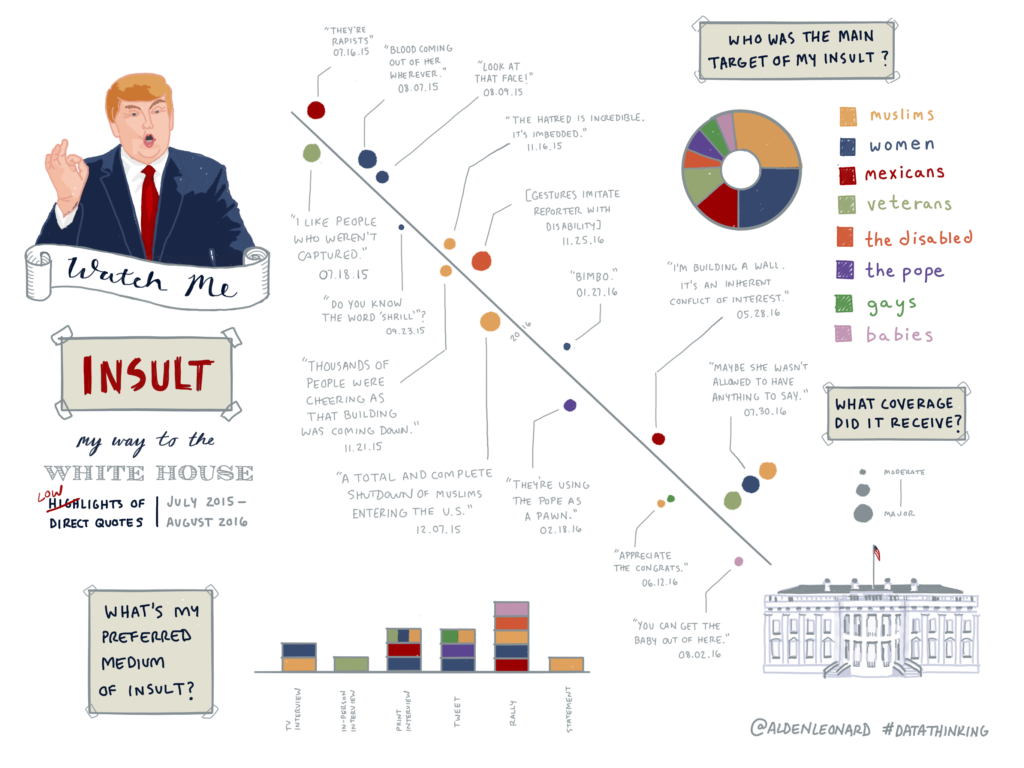 Watch Me
INSULT
my way to the
WHITE HOUSE
LOW
HIGHLIGHTS OF
DIRECT QUOTES
JULY 2015–
AUGUST 2016
"THEY'RE
RAPISTS"
07.16.15
"BLOOD COMING
OUT OF HER
WHEREVER."
08.07.15
"LOOK AT
THAT FACE!"
08.09.15
"THE HATRED IS INCREDIBLE.
IT'S IMBEDDED."
11.16.15
[GESTURES IMITATE
REPORTER WITH
DISABILITY]
11.25.16
"I LIKE PEOPLE
WHO WEREN'T
CAPTURED."
07.18.15
"DO YOU KNOW
THE WORD 'SHRILL'"?
09.23.15
"THOUSANDS OF
PEOPLE WERE
CHEERING AS
THAT BUILDING
WAS COMING DOWN."
11.21.15
"A TOTAL AND COMPLETE
SHUTDOWN OF MUSLIMS
ENTERING THE U.S."
12.07.15
2016
"BIMBO."
01.27.16
"THEY'RE USING
THE POPE AS
A PAWN."
02.18.16
"I'M BUILDING A WALL.
IT'S AN INHERENT
CONFLICT OF INTEREST."
05.28.16
"MAYBE SHE WASN'T
ALLOWED TO HAVE
ANYTHING TO SAY."
07.30.16
"APPRECIATE
THE CONGRATS."
06.12.16
"YOU CAN GET THE
BABY OUT OF HERE."
08.02.16
WHO WAS THE MAIN
TARGET OF MY INSULT?
muslims
women
mexicans
veterans
the disabled
the pope
gays
babies
WHAT COVERAGE
DID IT RECEIVE?
MODERATE
MAJOR
WHAT'S MY
PREFERRED
MEDIUM
OF INSULT?
TV
INTERVIEW
IN-PERSON
INTERVIEW
PRINT
INTERVIEW
TWEET
RALLY
STATEMENT
@ALDENLEONARD #DATATHINKING